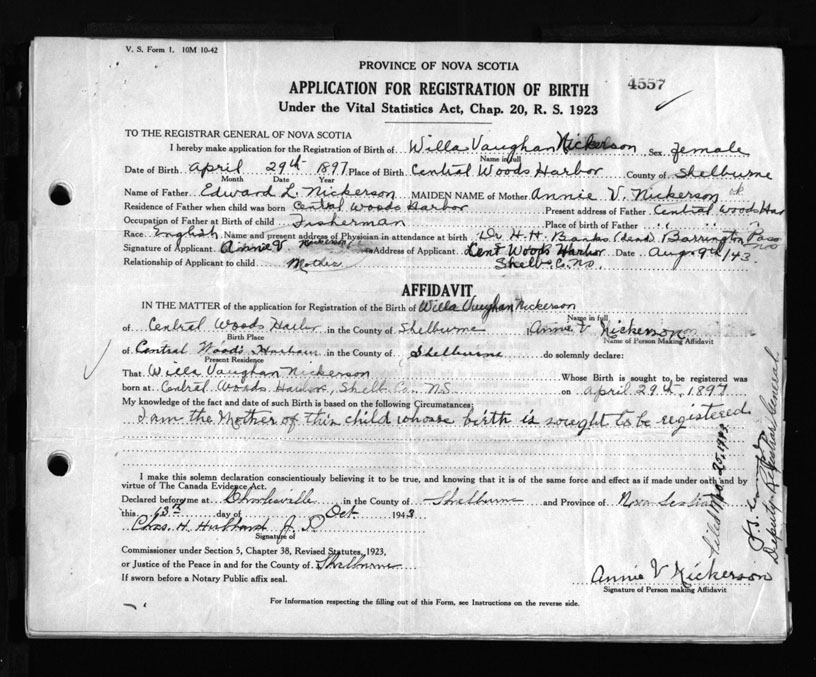 V. S. Form 1. 10M 10-42
PROVINCE OF NOVA SCOTIA
APPLICATION FOR REGISTRATION OF BIRTH 4557
Under the Vital Statistics Act, Chap. 20, R. S. 1923
TO THE REGISTRAR GENERAL OF NOVA SCOTIA
I hereby make application for the Registration of Birth of Willa Vaughan Nickerson Sex female
Name in full
Date of Birth April 29th 1897 Place of Birth Central Woods Harbor County of Shelburne
Month Date Year
Name of Father Edward L. Nickerson MAIDEN NAME of Mother Annie V. Nickerson ok
Residence of Father when child was born Central Woods Harbor Present address of Father Central Woods Har
Occupation of Father at Birth of child Fisherman Place of birth of Father " " "
Race English Name and present address of Physician in attendance at birth Dr H. H. Banks (dead) Barrington Pass NS
Signature of Applicant Annie V Nickerson Address of Applicant Cent Woods Harbor Date Aug 9th/43
Relationship of Applicant to child Mother Shelb. Co. NS.
AFFIDAVIT
IN THE MATTER of the application for Registration of the Birth of Willa Vaughan Nickerson
Name in full
of Central Woods Harbor in the County of Shelburne Annie V Nickerson
Birth Place Name of Person Making Affidavit
of Central Woods Harbour in the County of Shelburne do solemnly declare:
Present Residence
That Willa Vaughan Nickerson Whose Birth is sought to be registered was
born at Central Woods Harbor, Shelb. Co. N.S. on April 29th, 1897
My knowledge of the fact and date of such Birth is based on the following Circumstances:
I am the Mother of this child whose birth is sought to be registered
I make this solemn declaration conscientiously believing it to be true, and knowing that it is of the same force and effect as if made under oath and by
virtue of The Canada Evidence Act.
Declared before me at Charlesville in the County of Shelburne and Province of Nova Scotia
this day of Oct 1943
Chas. H. J. P.
Signature of
Commissioner under Section 5, Chapter 38, Revised Statutes, 1923,
or Justice of the Peace in and for the County of Shelburne
If sworn before a Notary Public affix seal.
Annie V Nickerson
Signature of Person making Affidavit
For Information respecting the filling out of this Form, see Instructions on the reverse side.
Filed 25, 1943
Deputy Registrar General